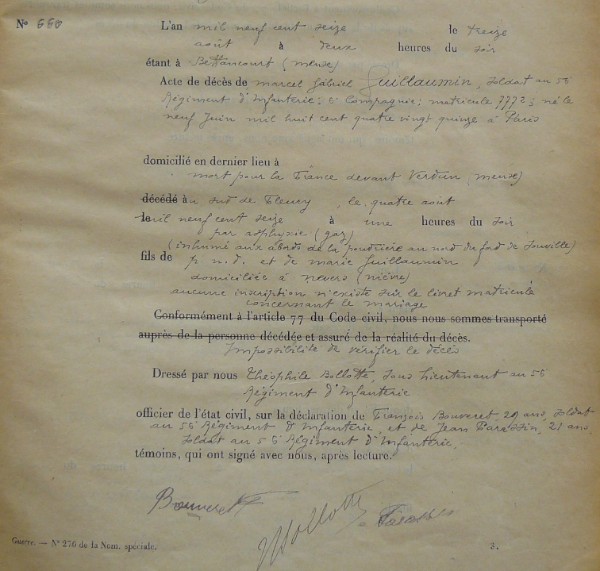 No 556 L'an mil neuf cent seize le treize
août à deux heures du soir
étant à Bettancourt (meuse)
Acte de décès de marcel Gabriel Guillaumin, soldat au 56
Régiment d'Infanterie; 5e Compagnie; matricule 7772; né le
neuf Juin mil huit cent quatre vingt quinze à Paris
domicilié en dernier lieu à
mort pour la France devant Verdun (meuse)
décédé à au sud de Fleury, le quatre août
le mil neuf cent seize à une heures du soir
par asphyxie (gaz)
(inhumé aux abords de la poudrière au nord du fort de Souville)
fils de p. n. d. et de marie Guillaumin
domiciliés à nevers (nièvre)
aucune inscription n'existe sur le livret matricule
concernant le mariage
Conformément à l'article 77 du Code civil, nous nous sommes transporté
auprès de la personne décédée et assuré de la réalité du décès.
Impossibilité de vérifier le décès
Dressé par nous Théophile Bollotte, sous lieutenant au 56
Régiment d'Infanterie
officier de l'état civil, sur la déclaration de François Bouveret, 20 ans, soldat
au 56 Régiment d'Infanterie, et de Jean 21 ans,
soldat au 56 Régiment d'Infanterie,
témoins, qui ont signé avec nous, après lecture.
Bouveret Bollotte
Guerre. — N° 276 de la Nom. spéciale. 3.